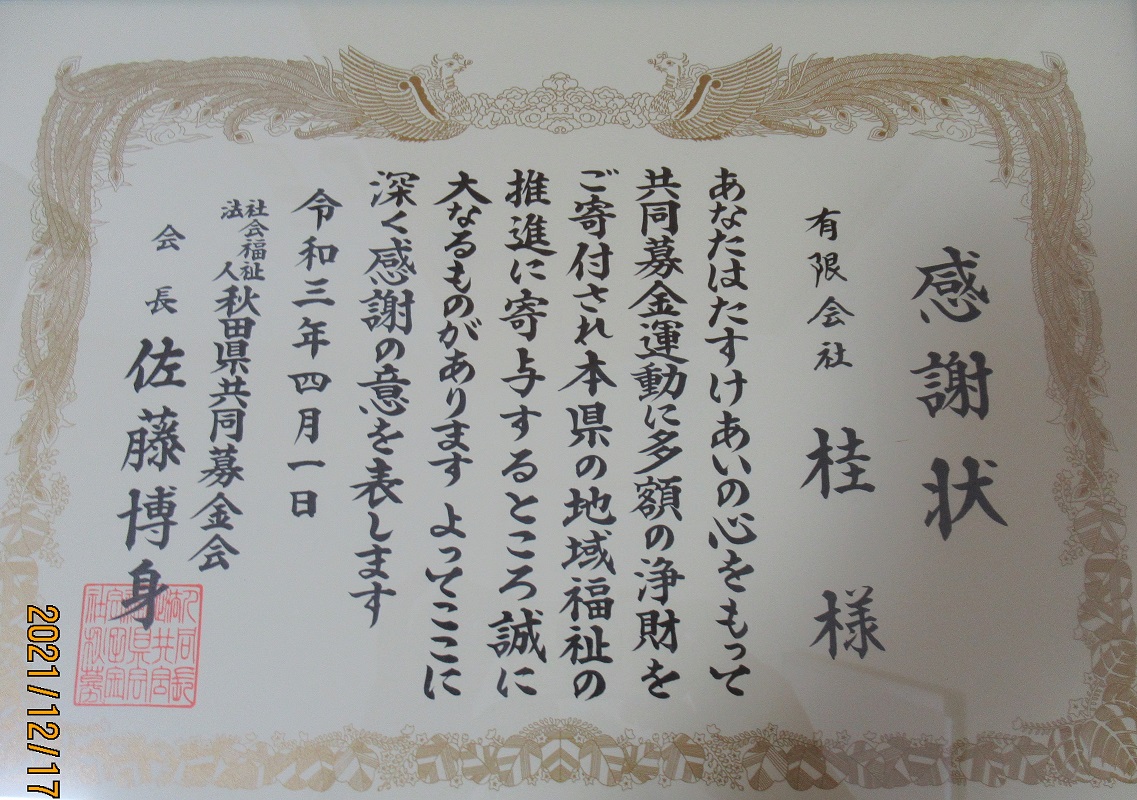 感謝状
有限会社 桂 様
あなたはたすけあいの心をもって
共同募金運動に多額の浄財を
ご寄付され本県の地域福祉の
推進に寄与するところ誠に
大なるものがあります よってここに
深く感謝の意を表します
令和三年四月一日
社会福祉法人 秋田県共同募金会
会長 佐藤博身
2021/12/17